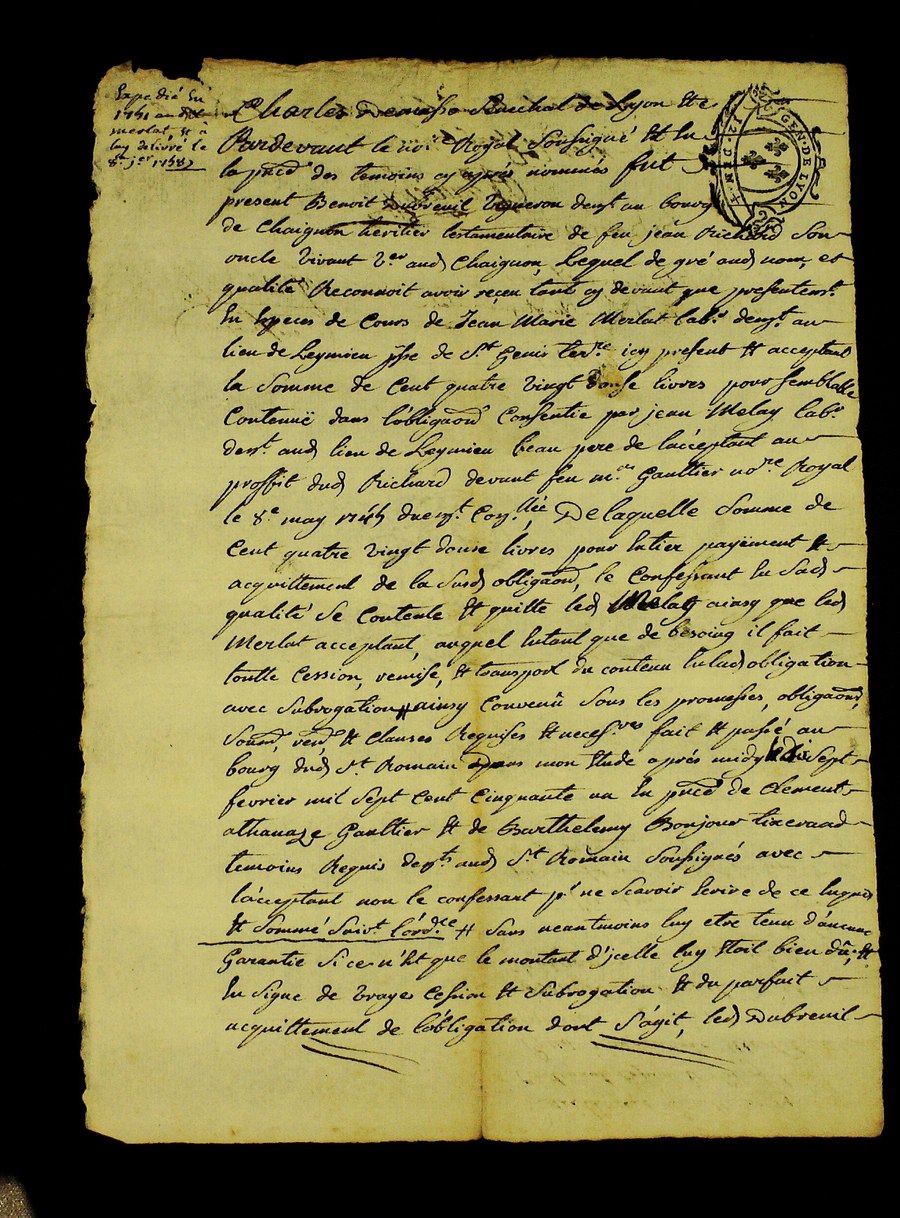 Expedié En
1751 aud
merlat & a
luy delivré le
8e jer 1758
Charles Demasso Senechal de Lyon &c
Pardevant le noire Royal Soussigné & En
la pnce des temoins cy apres nommés fut
present Benoit Dubreuil Vigneron demt au bourg
de Chaignon heritier testamentaire de feu jean Richard Son
oncle Vivant Ver aud Chaignon, Lequel de gré aud nom, et
qualité Reconnoit avoir reçeu tant cy devant que presentemt
En Especes de Cours de Jean Marie Merlat labr demt au
lieu de Leymieu psse de St Genis terre icy present & acceptant
la Somme de Cent quatre vingt douse livres pour semblable
Contenuë dans l'obligaond Consentie par jean Melay labr
demt aud lieu de Leymieu beau pere de l'acceptant au
proffit dud Richard devant feu me Gaultier nore Royal
le 8e may 1745 duemt Conllée, De laquelle Somme de
Cent quatre vingt douse livres pour Entier payëment &
acquittement de la Susd obligaond, le Confessant En Sad
qualité Se Contente & quitte led Melay ainsy que led
Merlat acceptant, auquel Entant que de besoing il fait
toutte Cession, remise, & transport du contenu En lad obligation
avec Subrogation # ainsy Convenû Sous les promesses, obligaond,
Soumd, rend & Clauses Requises & necesres fait & passé au
bourg dud St Romain dans mon Etude apres midy le Sept
fevrier mil Sept Cent Cinquante un En pnce de Clement
athanaze Gaultier & de Barthelemy Bonjour tixerand
temoins Requis demts aud St Romain Soussignés avec
l'acceptant non le confessant pr ne Scavoir Ecrire de ce Enquis
& Sommé Suivt l'ordce # Sans neantmoins luy etre tenu d'aucune
Garantie Si ce n'Est que le montant d'jcelle luy Etoit bien dû; #
En Signe de Vraye Cession & Subrogation & du parfait
acquittement de l'obligation dont S'agit, led Dubreuil
GEN. DE LYON
12. DEN. 4